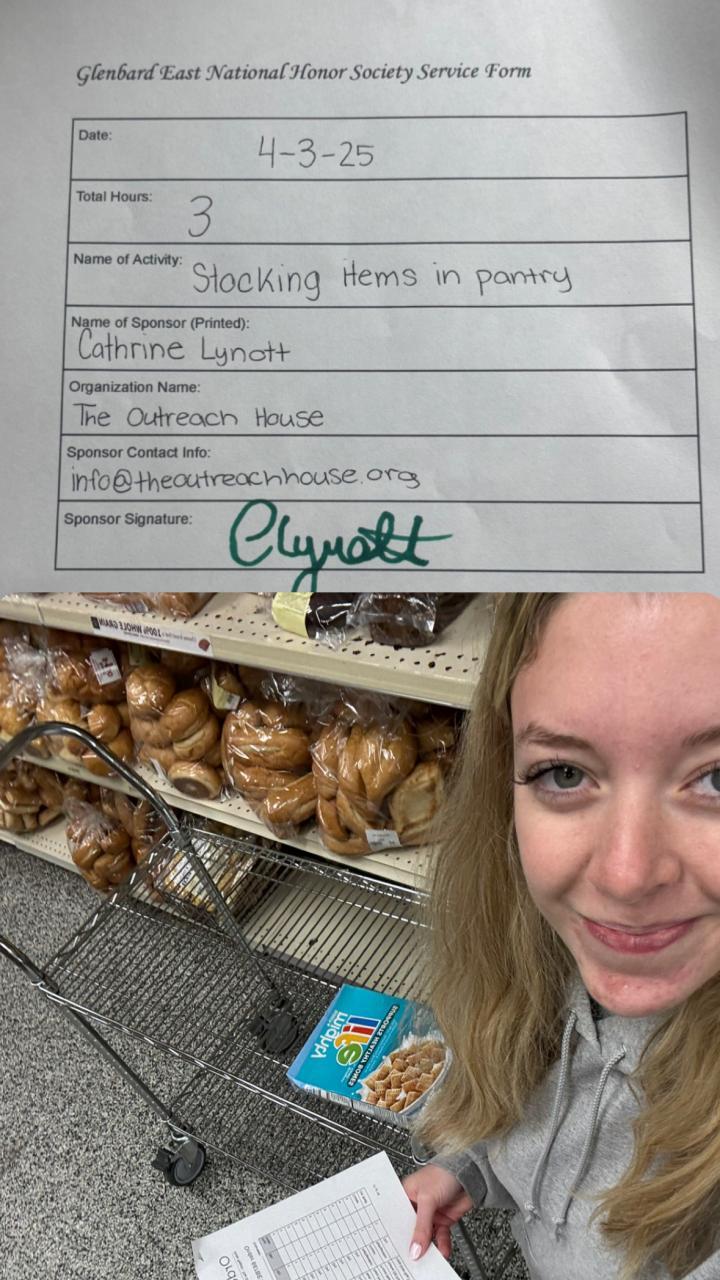 Glenbard East National Honor Society Service Form
Date: 4-3-25
Total Hours: 3
Name of Activity: Stocking items in pantry
Name of Sponsor (Printed):
Cathrine Lynott
Organization Name:
The Outreach House
Sponsor Contact Info:
info@theoutreachhouse.org
Sponsor Signature: Clynott
100% WHOLE GRAIN
life
SUPPORTS HEALTHY BONES